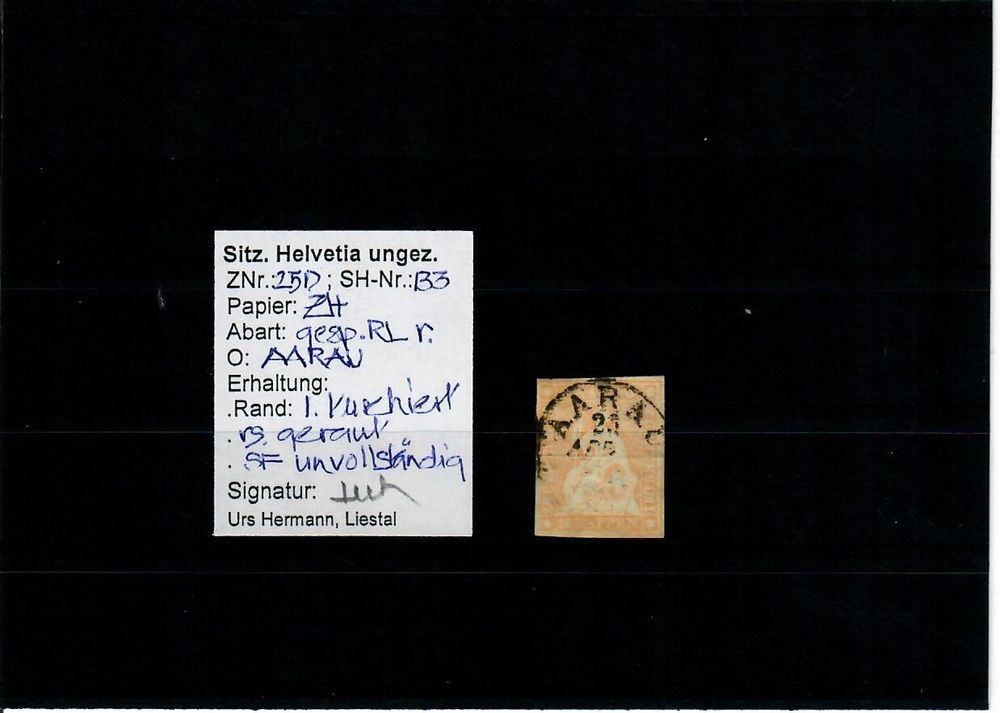 Sitz. Helvetia ungez.
ZNr.:25D ; SH-Nr.:B3
Papier: ZH
Abart: gesp. RL r.
O: AARAU
Erhaltung:
.Rand: l.
. rs.
. SF unvollständig
Signatur:
Urs Hermann, Liestal
AARAU
23
APR